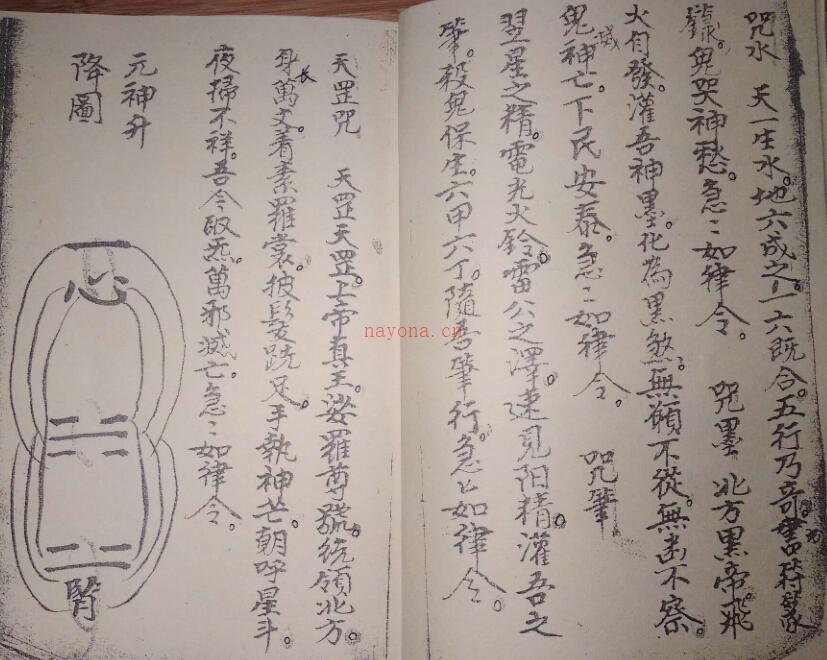 咒水　天一生水。地六成之。一六既合。五行乃奇。書符
籙。鬼哭神愁。急〻如律令。　咒墨　北方黑帝。飛
火自發。灌吾神墨。化為黑煞。無願不從。無幽不察。
鬼滅神亡。下民安泰。急〻如律令。　咒筆
翌星之精。電光火鈴。雷公之澤。速見阳精。灌吾之
筆。殺鬼保生。六甲六丁。隨吾筆行。急〻如律令。
天罡咒　天罡天罡。上帝真王。娑羅尊號。統領北方。
身長萬丈。着素羅裳。披髮跣足。手執神芒。朝呼星斗。
夜掃不祥。吾今敢炁。萬邪滅亡。急〻如律令。
元神升
降圖
心
腎
nayona.cn